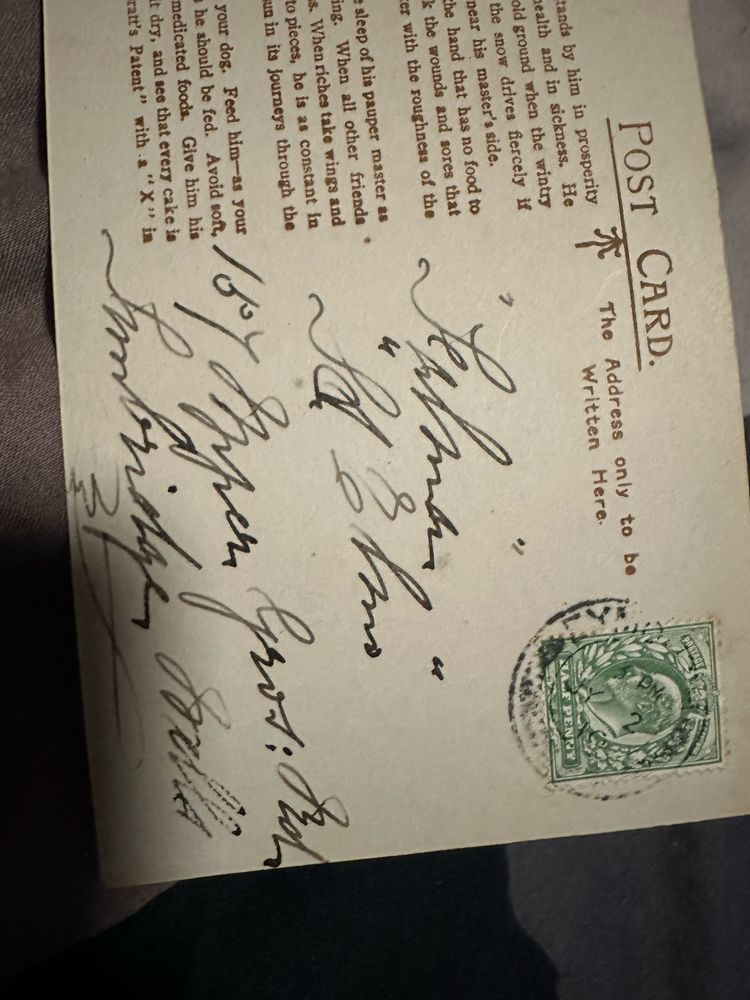 POST CARD.
The Address only to be
Written Here.
tands by him in prosperity
health and in sickness. He
old ground when the wintry
the snow drives fiercely if
near his master's side.
the hand that has no food to
k the wounds and sores that
ter with the roughness of the
e sleep of his pauper master as
ing. When all other friends
s. When riches take wings and
to pieces, he is as constant in
sun in its journeys through the
your dog. Feed him—as your
he should be fed. Avoid soft,
medicated foods. Give him his
it dry, and see that every cake is
ratt's Patent" with a "X" in
Upper Gros: Rd
Tunbridge Wells
HALFPENNY